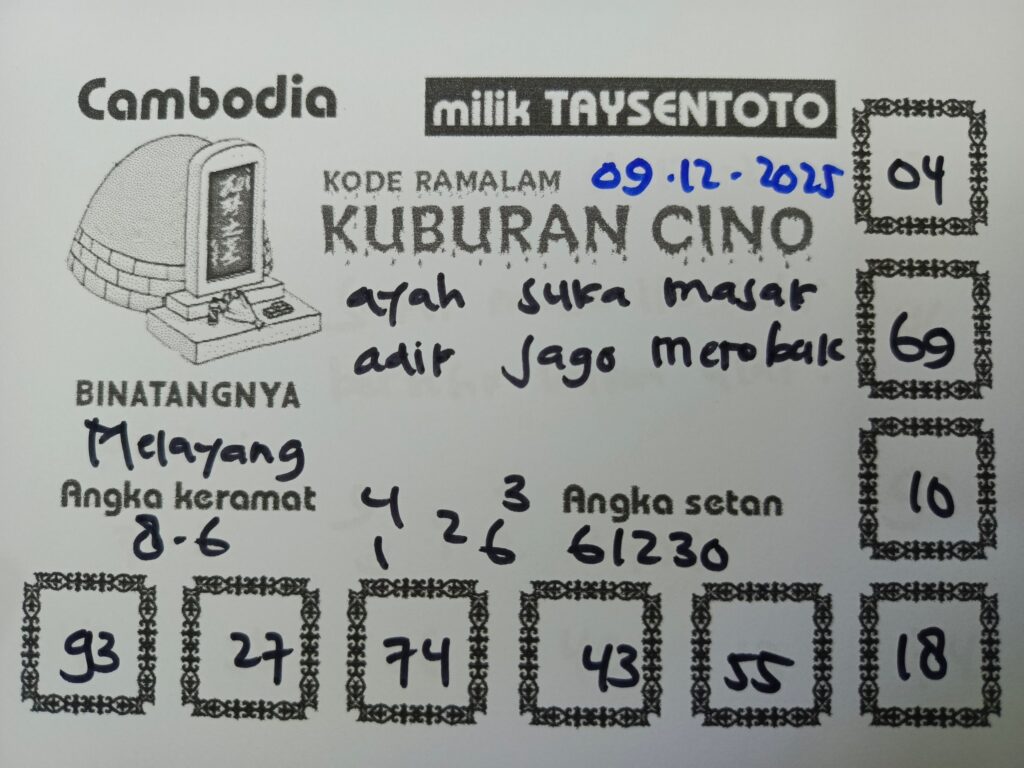 Cambodia
milik TAYSENTOTO
KODE RAMALAM 09.12.2025
KUBURAN CINO
ayah suka masak
adik jago merobak
BINATANGNYA
Melayang
Angka keramat
8-6
4 3
2
1 6
Angka setan
61230
04
69
10
93 27 74 43 55 18